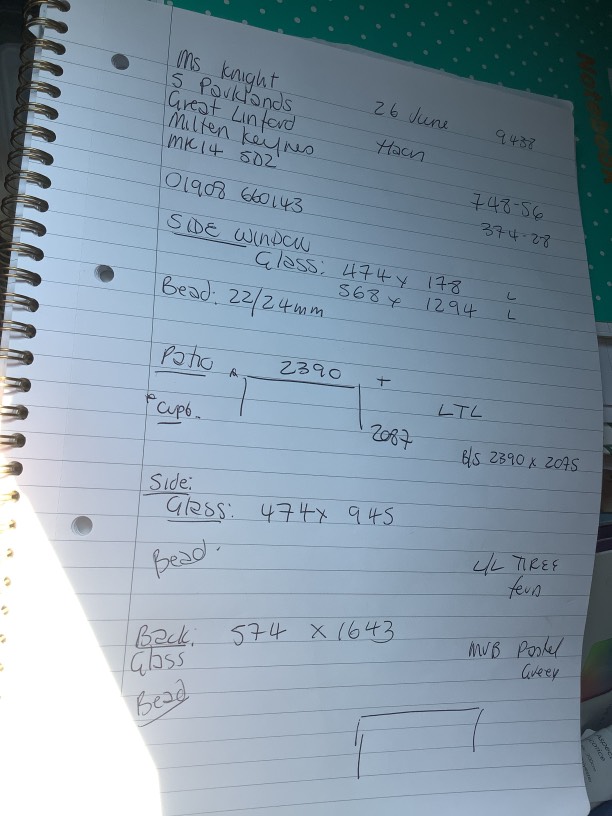 Ms Knight
5 Parklands
Great Linford
Milten Keynes
MK14 5DZ
26 June 9438
01908 660143
748-56
374-28
SIDE WINDOW
Glass: 474 x 178 L
568 x 1294 L
Bead: 22/24mm
Patio 2390 +
Cupb.
2087
LTL
B/S 2390 x 2075
Side:
Glass: 474 x 945
Bead.
L/L TIREE
fern
Back: 574 x 1643
Glass
MVB Pastel
Green
Bead